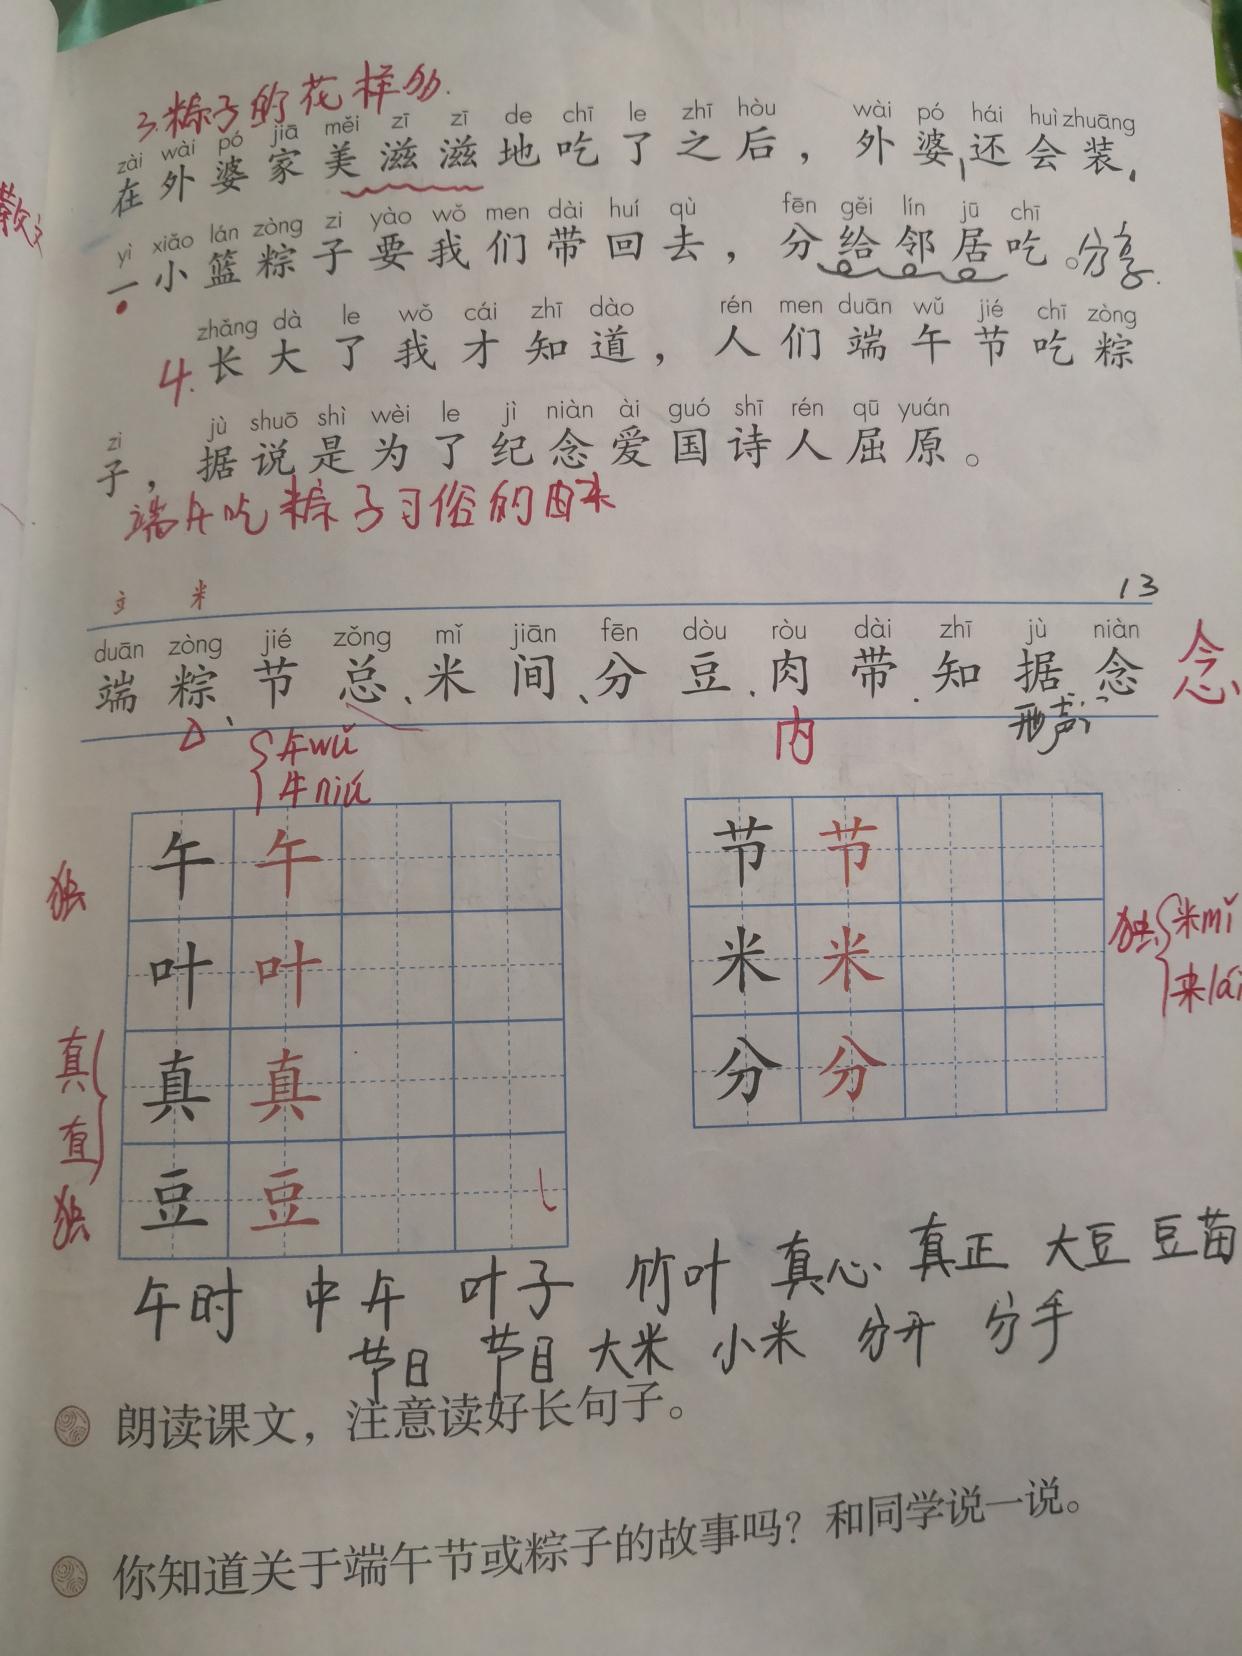 3.粽子的花样多.
zài wài pó jiā měi zī zī de chī le zhī hòu wài pó hái huì zhuāng
在外婆家美滋滋地吃了之后，外婆还会装
散文
yì xiǎo lán zòng zi yào wǒ men dài huí qù fēn gěi lín jū chī
一小篮粽子要我们带回去，分给邻居吃。分享.
zhǎng dà le wǒ cái zhī dào rén men duān wǔ jié chī zòng
4.长大了我才知道，人们端午节吃粽
zi jù shuō shì wèi le jì niàn ài guó shī rén qū yuán
子，据说是为了纪念爱国诗人屈原。
端午吃粽子习俗的由来
立 米 13
duān zòng jié zǒng mǐ jiān fēn dòu ròu dài zhī jù niàn
端 粽、节 总、米 间、分 豆、肉 带、知 据 念 念
形声
午wǔ
牛niú
内
独 午 午 节 节
叶 叶 米 米 独 米mǐ
来lái
真 真 真 分 分
直
独 豆 豆
午时 中午 叶子 竹叶 真心 真正 大豆 豆苗
节日 节目 大米 小米 分开 分手
朗读课文，注意读好长句子。
你知道关于端午节或粽子的故事吗？和同学说一说。